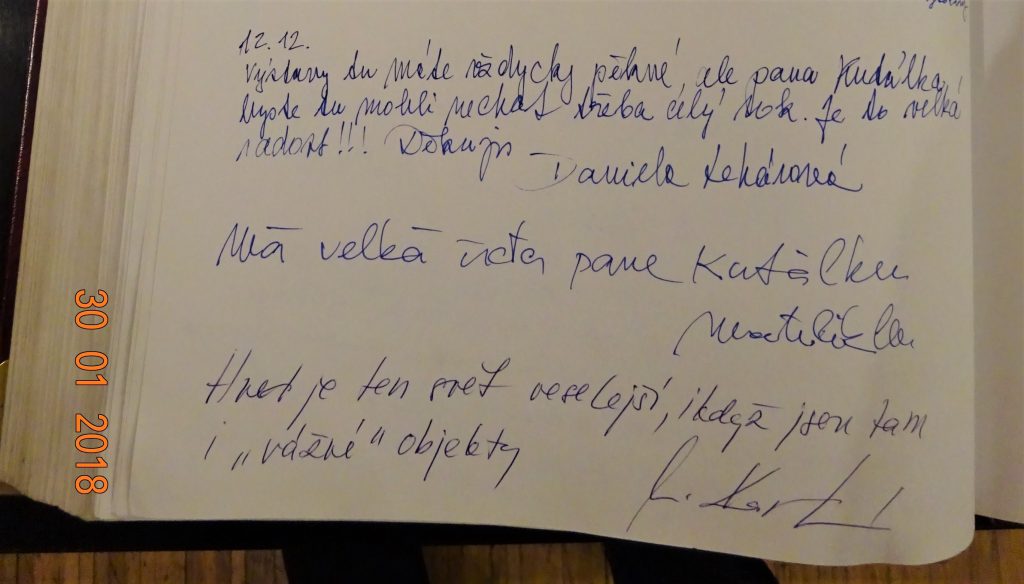 12.12.
Výstavy tu máte vždycky pěkné, ale pana Kutálka
byste tu mohli nechat třeba celý rok. Je to velká
radost!!! Děkuji
Daniela
Má velká úcta pane Kutálku
Hned je ten svět veselejší, i když jsou tam
i „vážné“ objekty
30 01 2018